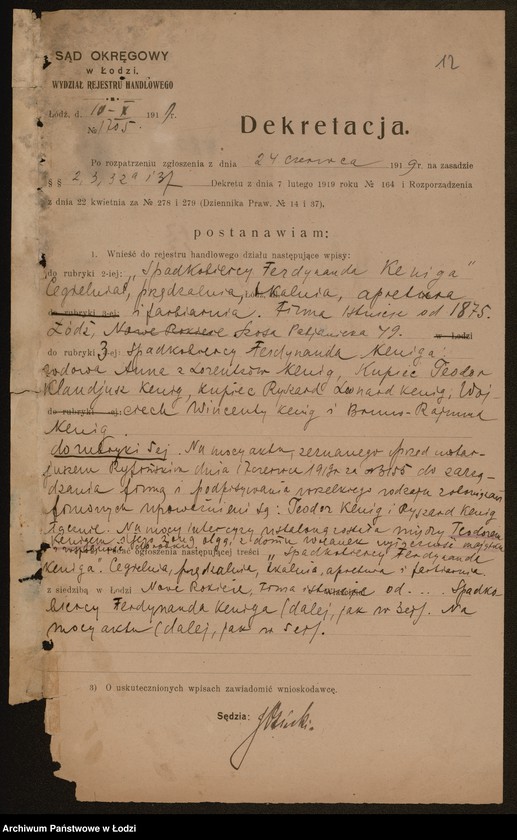 12
SĄD OKRĘGOWY
w Łodzi.
WYDZIAŁ REJESTRU HANDLOWEGO
Łódź, d. 10-X 1919 r.
№ 1705.
Dekretacja.
Po rozpatrzeniu zgłoszenia z dnia 24 czerwca 1919 r na zasadzie
§ § 2, 3, 32a i 37 Dekretu z dnia 7 lutego 1919 roku № 164 i Rozporządzenia
z dnia 22 kwietnia za № 278 i 279 (Dziennika Praw. № 14 i 37),
postanawiam:
1. Wnieść do rejestru handlowego działu następujące wpisy:
do rubryki 2-iej: „Spadkobiercy Ferdynanda Keniga"
Cegielnia, przędzalnia, tkalnia, apretura
do rubryki 3-iej: i farbiarnia. Firma istnieje od 1875.
Łódź, Nowe Rokicie 79. w Łodzi
do rubryki 3-ej: Spadkobiercy Ferdynanda Keniga:
wdowa Anna z Lorentzów Kenig, Kupiec Teodor
Klaudjusz Kenig, kupiec Ryszard Leonard Kenig, Woj-
do rubryki -ej: ciech Wincenty Kenig i Bruno-Rajmund
Kenig
do rubryki 5ej. Na mocy aktu, zeznanego przed notar-
juszem dnia 17 czerwca 1913 r za № 3155 do zarzą-
dzania firmą i podpisywania wszelkiego rodzaju zobowiązań
firmowych upoważnieni są: Teodor Kenig i Ryszard Kenig
łącznie. Na mocy intercyzy ustaloną została między Teodorem
Kenigiem a jego żoną Olgą, z domu wyłączność majątku
i wspólność dorobku.
ogłoszenia następującej treści „Spadkobiercy Ferdynanda
Keniga". Cegielnia, przędzalnia, tkalnia, apretura i farbiarnia
z siedzibą w Łodzi Nowe Rokicie, firma istnieje od ... Spadko
biercy Ferdynanda Keniga (dalej, jak w 3ej). Na
mocy aktu (dalej, jak w 5ej).
3) O uskutecznionych wpisach zawiadomić wnioskodawcę.
Sędzia:
Archiwum Państwowe w Łodzi